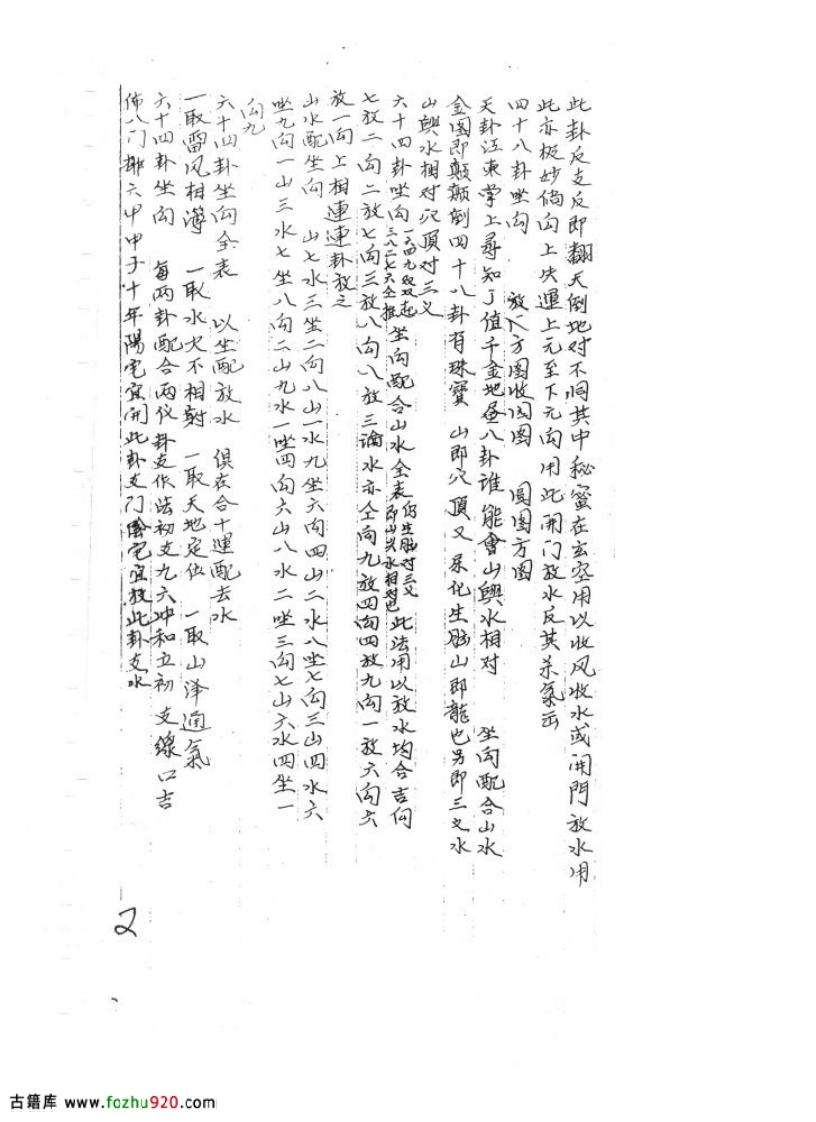 此卦反支反即翻天倒地对不同其中秘蜜在玄空用以收风收水或開門放水用
此亦极妙倘向上失運上元至下元向用此開门放水反其杀氣云
四十八卦坐向 放八方圖收圓圖 圓圖方圖
天卦江東掌上尋知了值千金地屋八卦谁能會山與水相对 坐向配合山水
金圖即颠颠倒四十八卦有珠寶 山即穴頂又呆化生脑山即龍也男即三叉水
山與水相对穴頂对三义
六十四卦坐向 一六四九双双起 三八二七六仝推 坐向配合山水全表 化生脑对三义 即山與水相对也 此法用以放水均合吉向
七放二向二放七向三放八向八放三論水亦仝向九放四向四放九向一放六向六
放一向上相連連卦放之
山水配坐向 山七水三坐二向八山一水九坐六向四山二水八坐七向三山四水六
坐九向一山三水七坐八向二山九水一坐四向六山八水二坐三向七山六水四坐一
向九
六十四卦坐向全表 以坐配放水 俱在合十運配去水
一取雷风相薄 一取水火不相射 一取天地定位 一取山泽通氣
六十四卦坐向 每两卦配合两仪卦支作法初支九六冲和立初支線口吉
佈八门排六甲甲子十年陽宅宜開此卦支门陰宅宜放此卦支水
2
古籍库 www.fozhu920.com